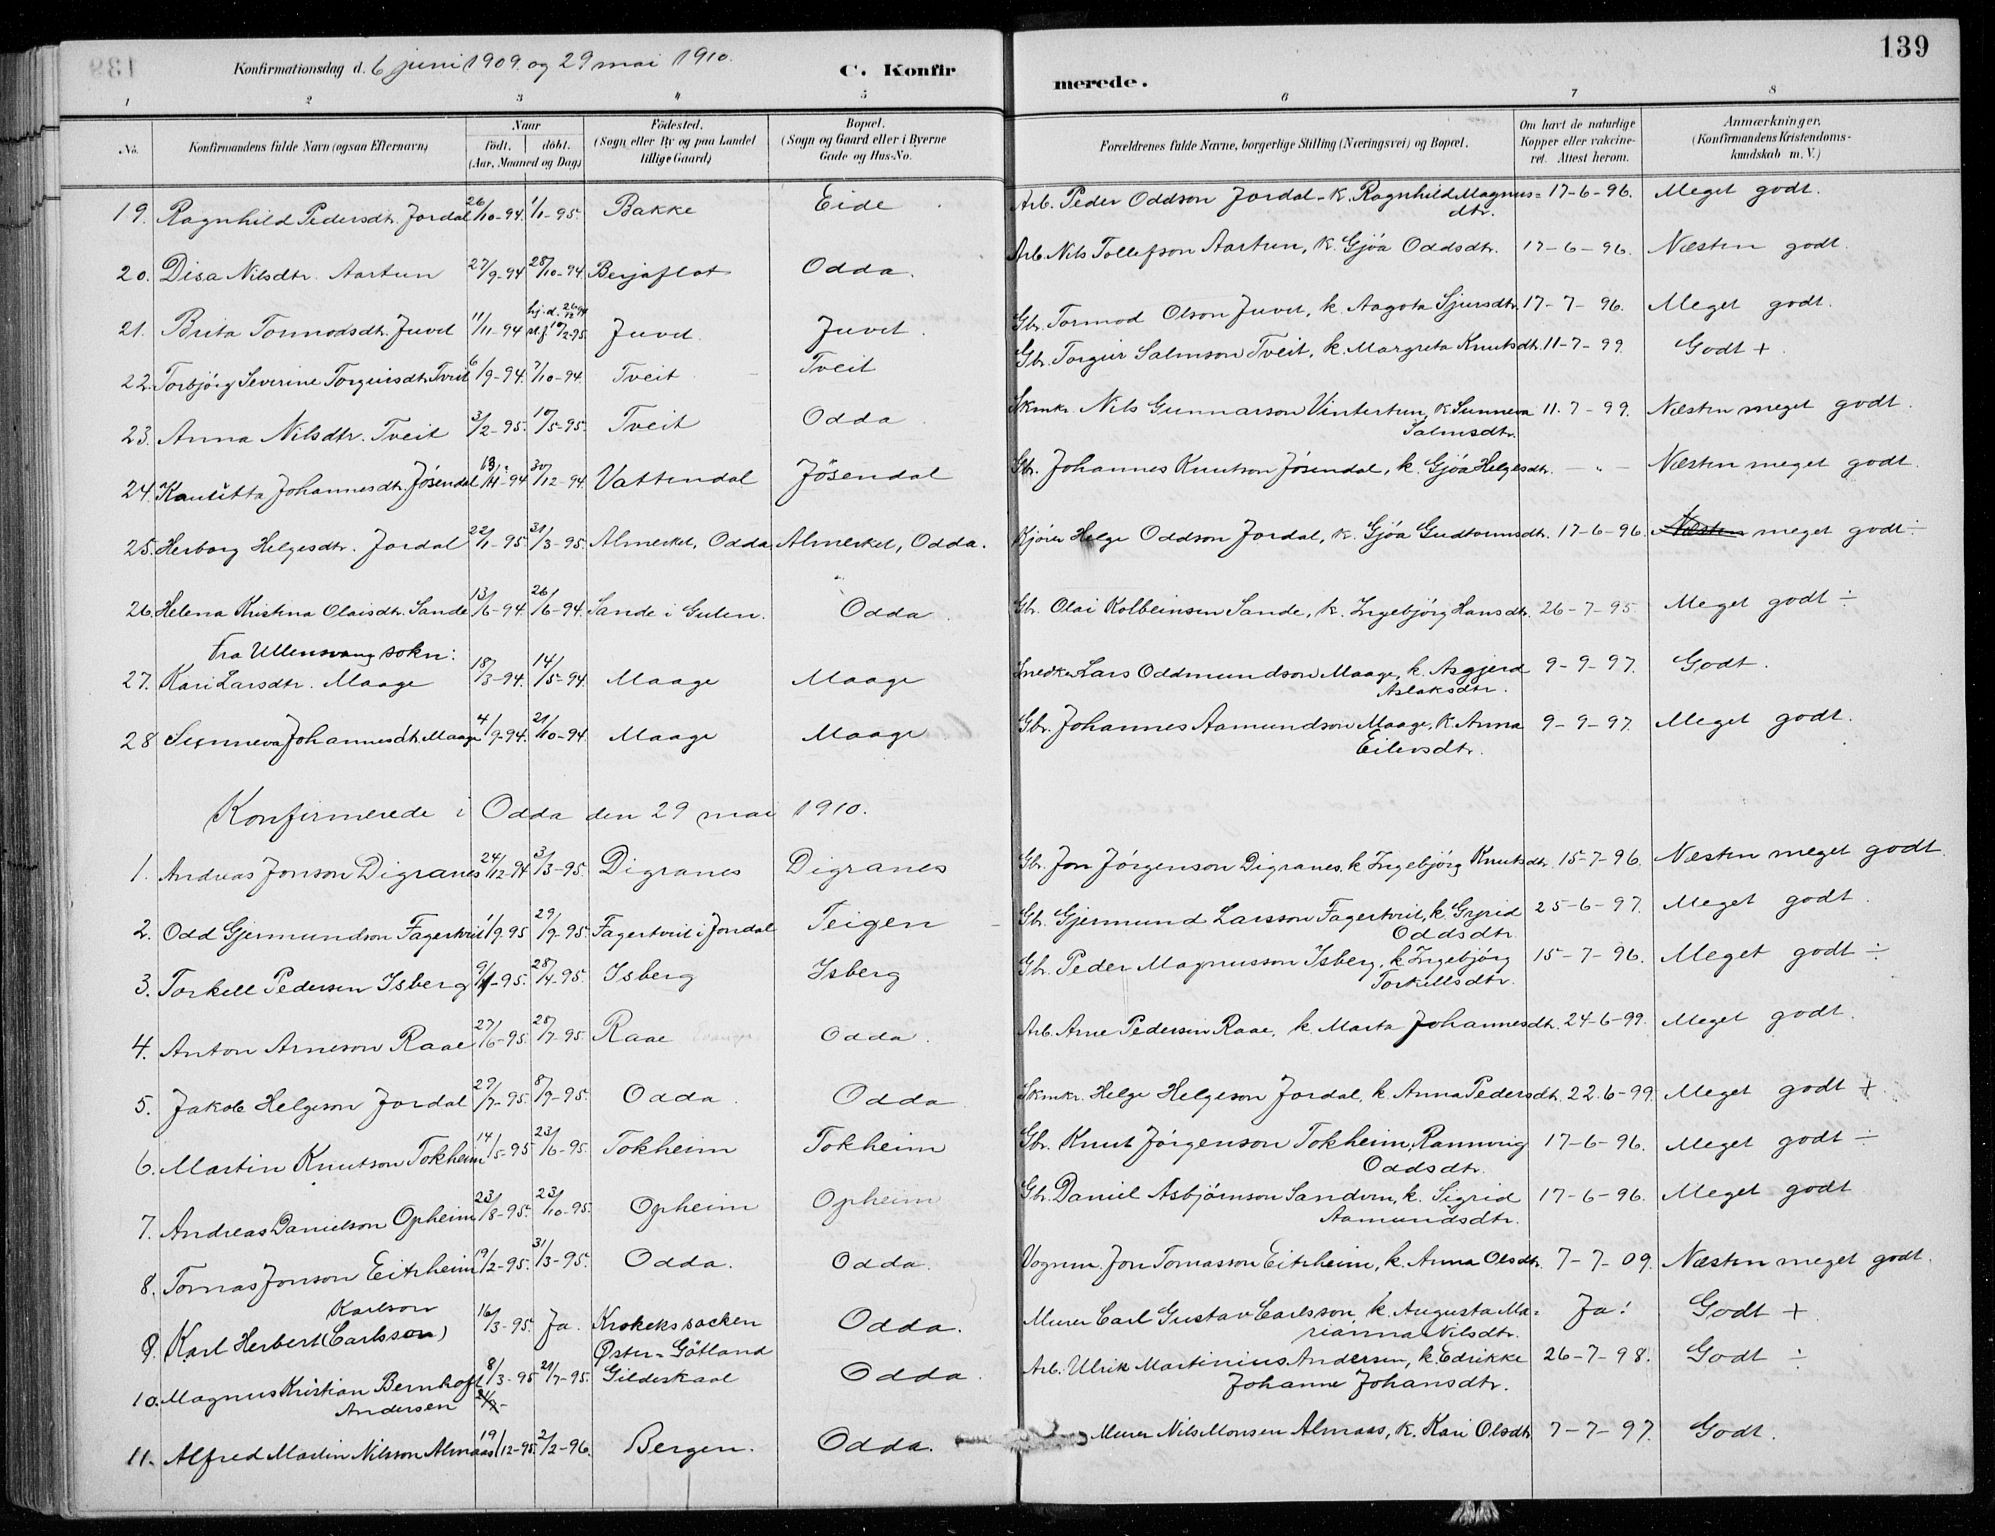 139
Konfirmationsdag d. 6 juni 1909. og 29 mai 1910.
C. Konfirmerede.
139
1 2 3 4 5 6 7 8
No. Konfirmandens fulde Navn (ogsaa Efternavn) Naar født. døbt. (Aar, Maaned og Dag) Fødested. (Sogn eller By og paa Landet tillige Gaard) Bopæl. (Sogn og Gaard eller i Byerne Gade og Hus-No. Forældrenes fulde Navne, borgerlige Stilling (Næringsvei) og Bopæl. Om havt de naturlige Kopper eller vakcineret. Attest herom. Anmærkninger. (Konfirmandens Kristendomskundskab m. V.)
19. Ragnhild Pedersdtr. Jordal 26/10-94. 1/1-95. Bakke Eide Arb. Peder Oddson Jordal - k. Ragnhild Magnus=dtr. 17-6-96. Meget godt.
20. Disa Nilsdtr. Aartun 27/9-94 28/10-94. Berjaflot Odda. Arb. Nils Tollefson Aartun, k. Gjøa Oddsdtr. 17-6-96. Næsten godt.
21. Brita Tormodsdtr. Juvet 11/11-94 hj.d. 26/12-94 st.f. 10/2-95. Juvet. Juvet. Gbr. Tormod Olson Juvet, k. Aagota Sjursdtr. 17-7-96. Meget godt.
22. Torbjørg Severine Torgeirsdtr. Tveit 6/9-94. 7/10-94. Tveit Tveit Gbr. Torgeir Salmson Tveit, k. Margreta Knutsdtr. 11-7-99. Godt +.
23. Anna Nilsdtr. Tveit 3/2-95. 19/5-95. Tveit Odda Skmkr. Nils Gunnarson Vintertun, k. Sunneva Salmsdtr. 11.7-99. Næsten meget godt.
24. Johannesdtr. Jøsendal 13/11-94 30/12-94. Vattendal Jøsendal Gbr. Johannes Knutson Jøsendal, k. Gjøa Helgesdtr. - " - Næsten meget godt.
25. Herborg Helgesdtr. Jordal 22/1-95 31/3-95. Almerket, Odda Almerket, Odda. Kjører Helge Oddson Jordal, k. Gjøa Gudtormsdtr. 17-6-96. Næsten meget godt ÷
26. Helena Kristina Olaisdtr. Sande 13/6-94. 26/6-94. Sande i Gulen. Odda. Gbr. Olai Kolbeinsen Sande, k. Ingebjørg Hansdtr. 26-7-95. Meget godt ÷
Fra Ullensvang sokn:
27. Kari Larsdtr. Maage 18/3-94. 14/5-94. Maage Maage Snedker Lars Oddmundson Maage, k. Asgjerd Aslaksdtr. 9-9-97. Godt.
28 Sunneva Johannesdtr. Maage 4/9-94. 21/10-94 Maage Maage Gbr. Johannes Aamundson Maage, k. Anna Eilevsdtr. 9-9-97. Meget godt.
Konfirmerede i Odda den 29 mai 1910.
1. Andreas Jonson Digranes 24/12-94 3/3-95. Digranes Digranes Gbr. Jon Jørgenson Digranes. k Ingebjørg Knutsdtr. 15-7-96. Næsten meget godt.
2. Odd Gjermundson Fagertveit 1/9-95 29/9-95. Fagertveit i Jordal Teigen Gbr. Gjermund Larsson Fagertveit, k. Gyrid Oddsdtr. 25-6-97. Meget godt.
3. Torkell Pedersen Isberg 9/1-95. 28/4-95. Isberg Isberg Gbr. Peder Magnusson Isberg, k. Ingebjørg Torkellsdtr. 15-7-96. Meget godt ÷
4. Anton Arneson Raae 27/6-95. 28/7-95. Raae Odda. Arb. Arne Pedersen Raae, k. Marta Johannesdtr. 24-6-99. Meget godt.
5. Jakob Helgeson Jordal 29/7-95. 8/9-95. Odda. Odda Skmkr. Helge Helgeson Jordal, k. Anna Pedersdtr. 22.6-99. Meget godt +.
6. Martin Knutson Tokheim 14/5-95 23/6-95. Tokheim Tokheim Gbr. Knut Jørgenson Tokheim, Rannveig Oddsdtr. 17-6-96. Meget godt ÷
7. Andreas Danielson Opheim 23/8-95. 23/10-95. Opheim Opheim Gbr. Daniel Asbjørnson Sandven, k. Sigrid Aamundsdtr. 17-6-96. Meget godt
8. Tomas Jonson Eitrheim 19/2-95. 31/3-95. Odda. Odda. Vognm. Jon Tomasson Eitrheim, k. Anna Olsdtr. 7-7-09. Næsten meget godt.
9. Karl Herbert (Carlsson) Karlson 16/3-95. Ja. Krokeks socken Øster-Götland Odda. Murer Carl Gustav Carlsson, k. Augusta Ma=rianna Nilsdtr. Ja! Godt +
10. Magnus Kristian Bernhoft Andersen 8/3-95 21/7-95. Gildeskaal Odda. Arb. Ulrik Martinius Andersen, k. Edrikke Johanne Johansdtr. 26-7-98. Godt ÷
11. Alfred Martin Nilsson Almaas 19/12-95. 2/2-96. Bergen. Odda. Murer Nils Monsen Almaas, k. Kari Olsdtr. 7-7-97. Godt.